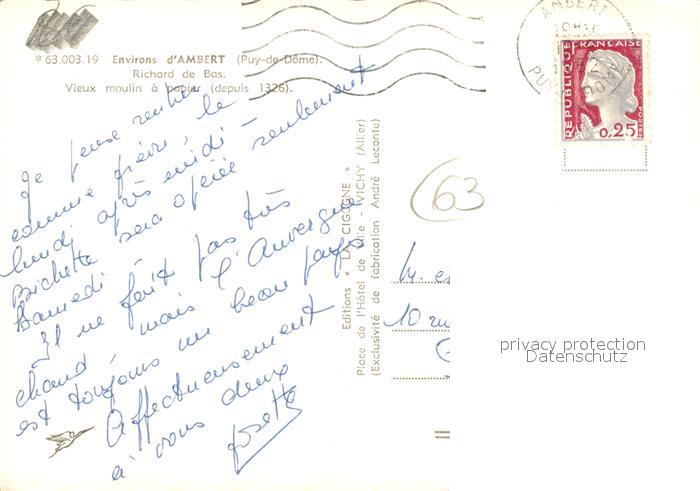 *63.003.19 Environs d'AMBERT (Puy-de-Dôme).
Richard de Bas.
Vieux moulin à papier (depuis 1326).
Je pense rentrer
comme prévu, le
lundi après-midi -
Bichette sera opérée seulement
Samedi.
Il ne fait pas très
chaud, mais l'Auvergne
est toujours un beau pays
Affectueusement
à vous deux
Josette
Editions « LA CIGOGNE »
Place de l'Hôtel de Ville - VICHY (Allier)
(Exclusivité de fabrication André Leconte)
AMBERT
PUY DE DOME
REPUBLIQUE FRANÇAISE
POSTES
0,25
63
M. et
10 ru
privacy protection
Datenschutz